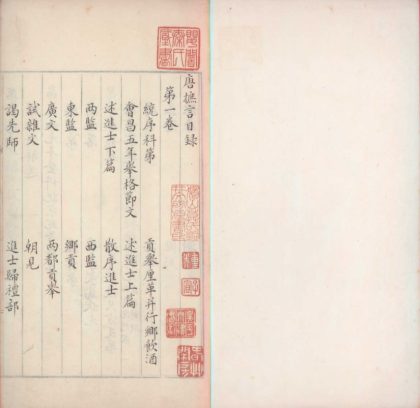 唐摭言目録
第一卷
統序科第 貢舉釐革并行鄉飲酒
會昌五年舉格節文 述進士上篇
述進士下篇 散序進士
兩監 西監
東監 鄉貢
廣文 兩都貢舉
試雜文 朝見
謁先師 進士歸禮部